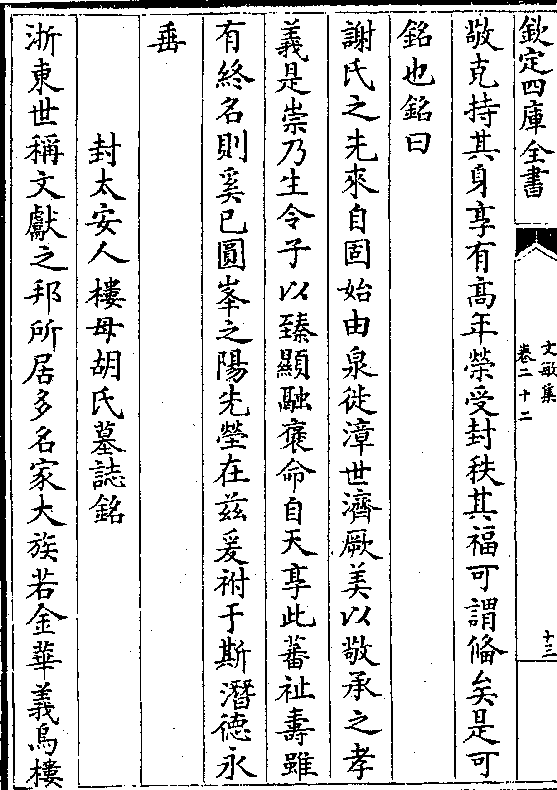 欽定四庫全書
文敏集
卷二十二
十三
敬克持其身享有髙年榮受封秩其福可謂備矣是可
銘也銘曰
謝氏之先來自固始由泉徙漳世濟厥美以敬承之孝
義是崇乃生令子以臻顯融褒命自天享此蕃祉壽雖
有終名則奚已圓峯之陽先塋在兹爰祔于斯潛德永
垂
封太安人樓母胡氏墓誌銘
浙東世稱文獻之邦所居多名家大族若金華義烏樓